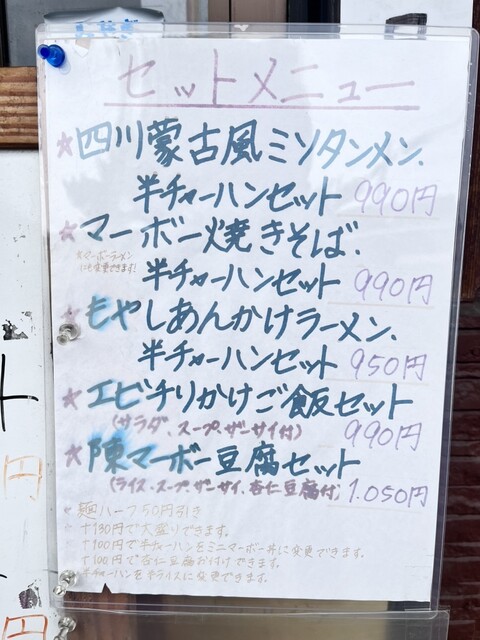 セットメニュー
★四川蒙古風ミソタンメン.
半チャーハンセット 990円
★マーボー焼きそば.
★マーボーラーメン
にも変更できます!
半チャーハンセット 990円
★もやしあんかけラーメン.
半チャーハンセット 950円
★エビチリかけご飯セット
(サラダ、スープ、ザーサイ付) 990円
★陳マーボー豆腐セット
(ライス・スープ、ザーサイ、杏仁豆腐付) 1.050円
麺ハーフ50円引き
+130円で大盛りできます。
+100円で半チャーハンをミニマーボー丼に変更できます。
+100円で杏仁豆腐お付けできます。
半チャーハンを半ライスに変更できます。
ト
円
円